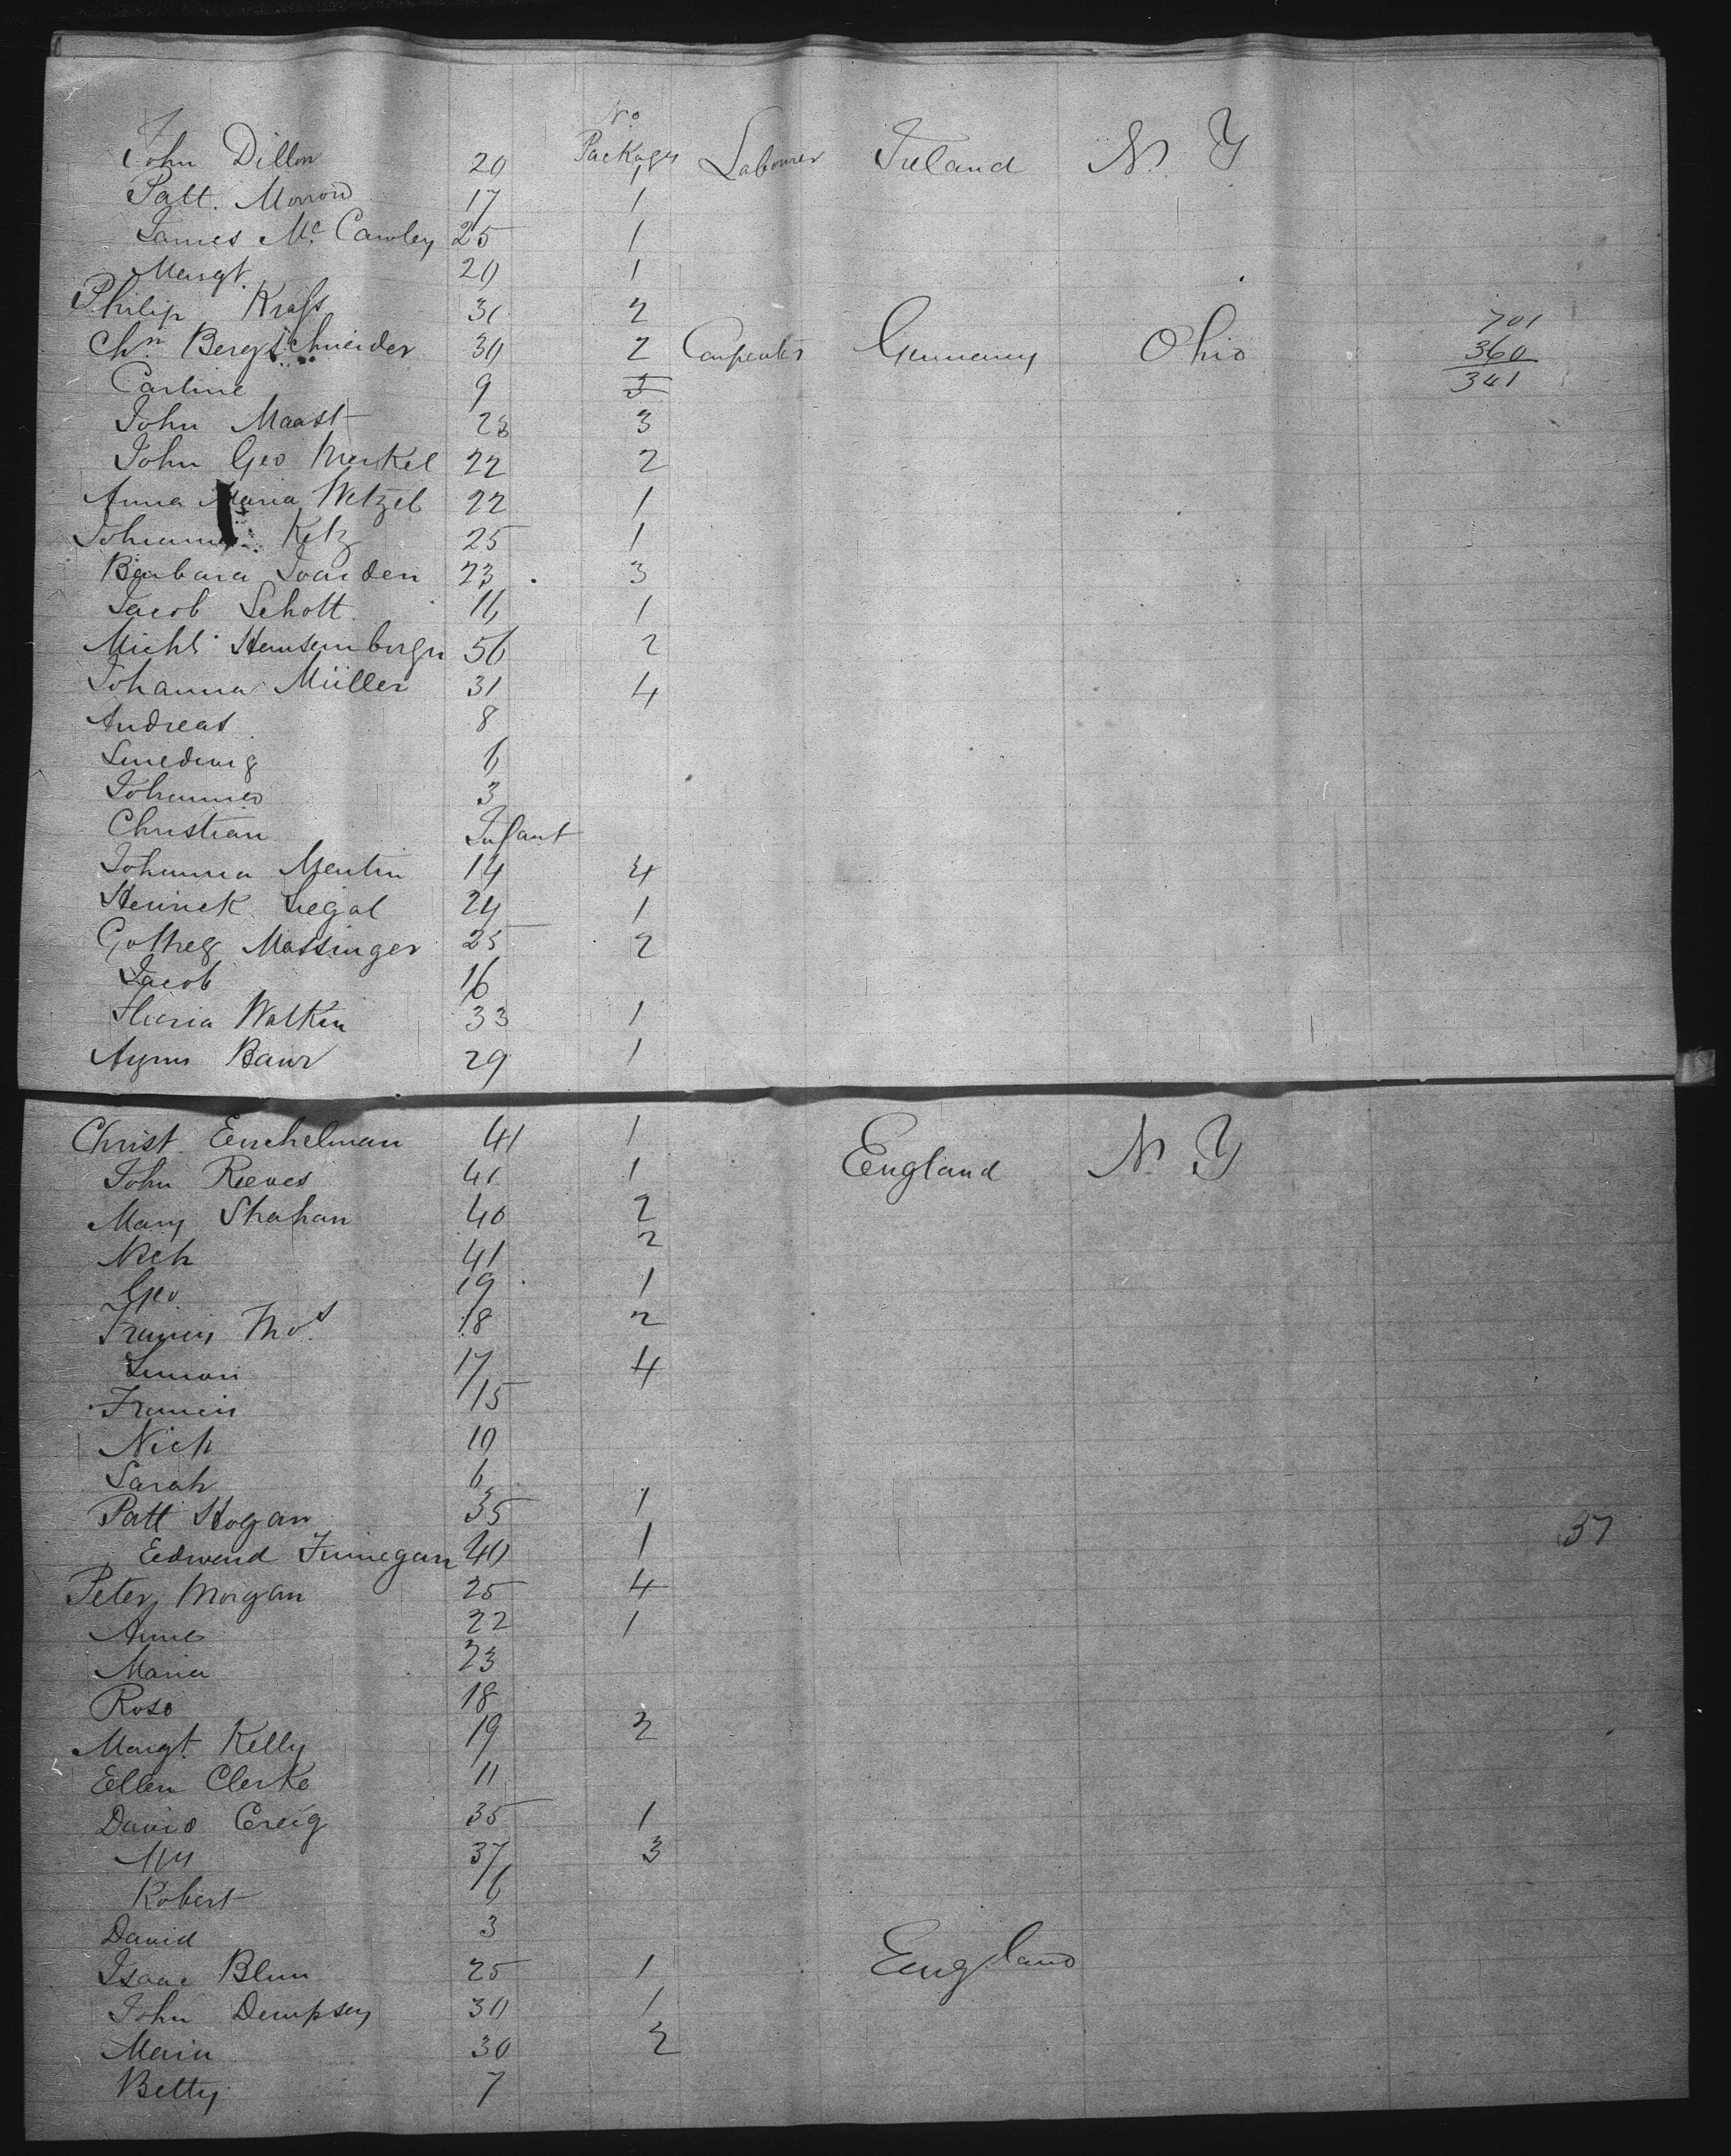 No
Packages
John Dillon 20 1 Labourer Ireland N. Y
Patt. Morrow 17 1
James Mc Cawley 25 1
Margt. 20 1
Philip Krafs 31 2
Chn Bergschneider 30 2 Carpenter Germany Ohio
701
360
341
Carline 9 5
John Maast 28 3
John Geo Merkel 22 2
Anna Maria Wetzel 22 1
Johannes Ketz 25 1
Barbara 23 3
Jacob Schott 16 1
Michl 56 2
Johanna Müller 31 4
Andreas 8
6
Johannes 3
Christian Infant
Johanna Martin 14 4
Heinrick Siegal 24 1
Massinger 25 2
Jacob 16
Watkin 33 1
Baur 29 1
Christ Enchelman 41 1
John Reeves 41 1 England N. Y
Mary Shahan 40 2
Nich 41 2
Geo. 19 1
Francis Thos 18 2
Simon 17 4
Francis 15
Nich 10
Sarah 6
Patt Hogan 35 1
Edward Finnegan 40 1 37
Peter Morgan 25 4
Anne 22 1
Maria 23
Rose 18
Margt. Kelly 19 2
Ellen Clerke 11
David Creig 35 1
Mrs 37 3
Robert 6
David 3
Isaac Blum 25 1 England
John Dempsey 30 1
Maria 30 2
Betty 7